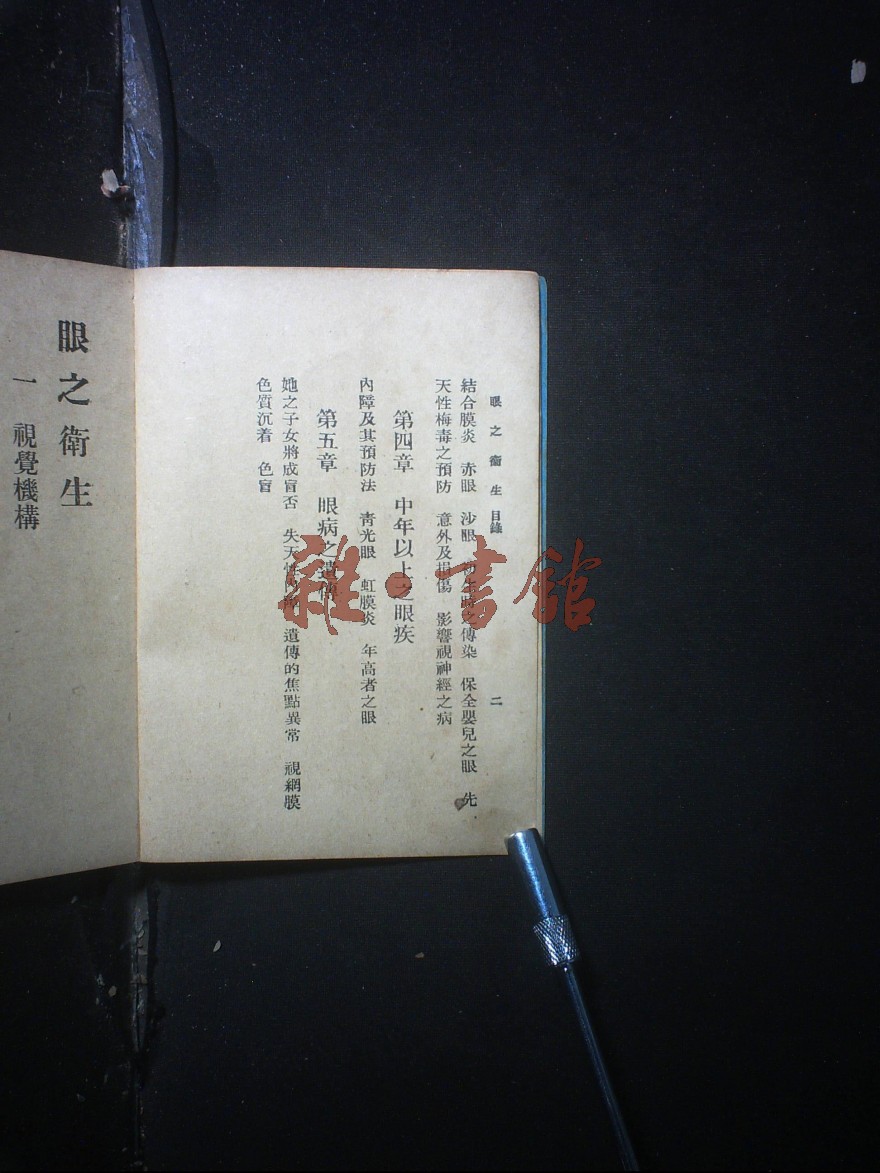 眼之衛生 目錄
二
結合膜炎 赤眼 沙眼 之傳染 保全嬰兒之眼 先
天性梅毒之預防 意外及損傷 影響視神經之病
第四章 中年以上之眼疾
內障及其預防法 青光眼 虹膜炎 年高者之眼
第五章 眼病之遺傳
她之子女將成盲否 失天性內障 遺傳的焦點異常 視網膜
色質沉着 色盲
眼之衛生
一 視覺機構
雜·書館